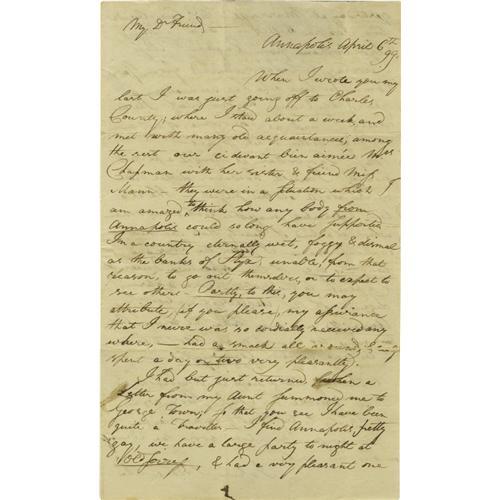 My Dr Friend,
Annapolis April 6th
99.
When I wrote you my
last I was just going off to Charles
County; where I staid about a week, and
met with many old acquaintances, among
the rest our cidevant bien aimée Mrs
Chapman with her sister & friend Miss
Mann - they were in a situation which I
am amazed to think how any body from
Annapolis could so long have supported
In a country eternally wet, foggy & dismal
as the banks of Styx, unable, from that
reason, to go out themselves, or to expect to
see others - Partly, to this, you may
attribute, if you please, my assurance
that I never was so cordially received any
where, - had a smack all round, &
spent a day or two very pleasantly.
I had but just returned, when a
Letter from my Aunt summoned me to
George Town; so that you see I have been
quite a Traveller - I find Annapolis, pretty
gay, we have a large party to night at
, & had a very pleasant one